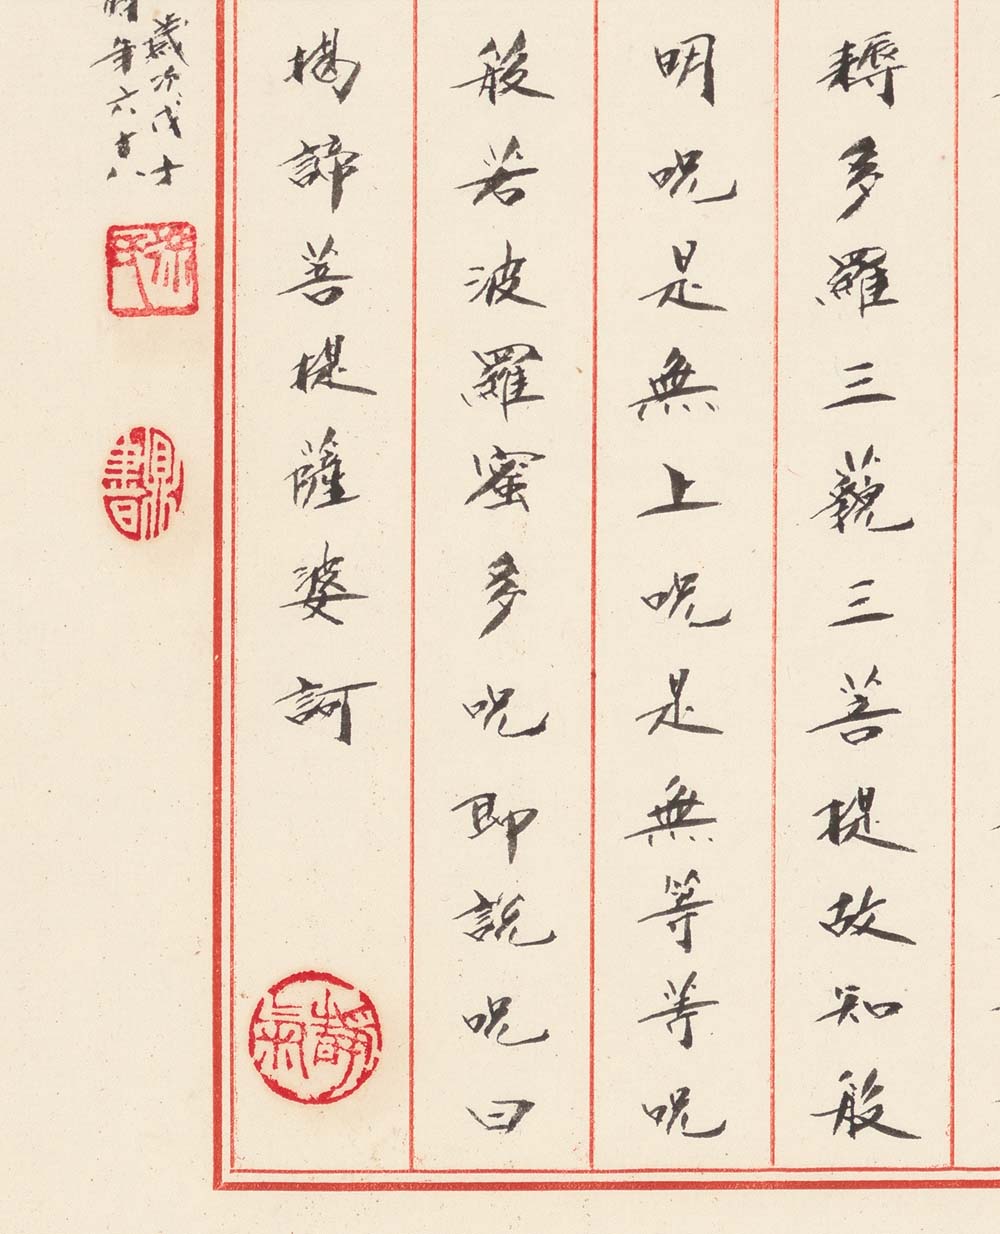 耨多羅三藐三菩提故知般
明呪是無上呪是無等等呪
般若波羅蜜多呪即說呪曰
揭諦菩提薩婆訶
歲次戊
年六十八